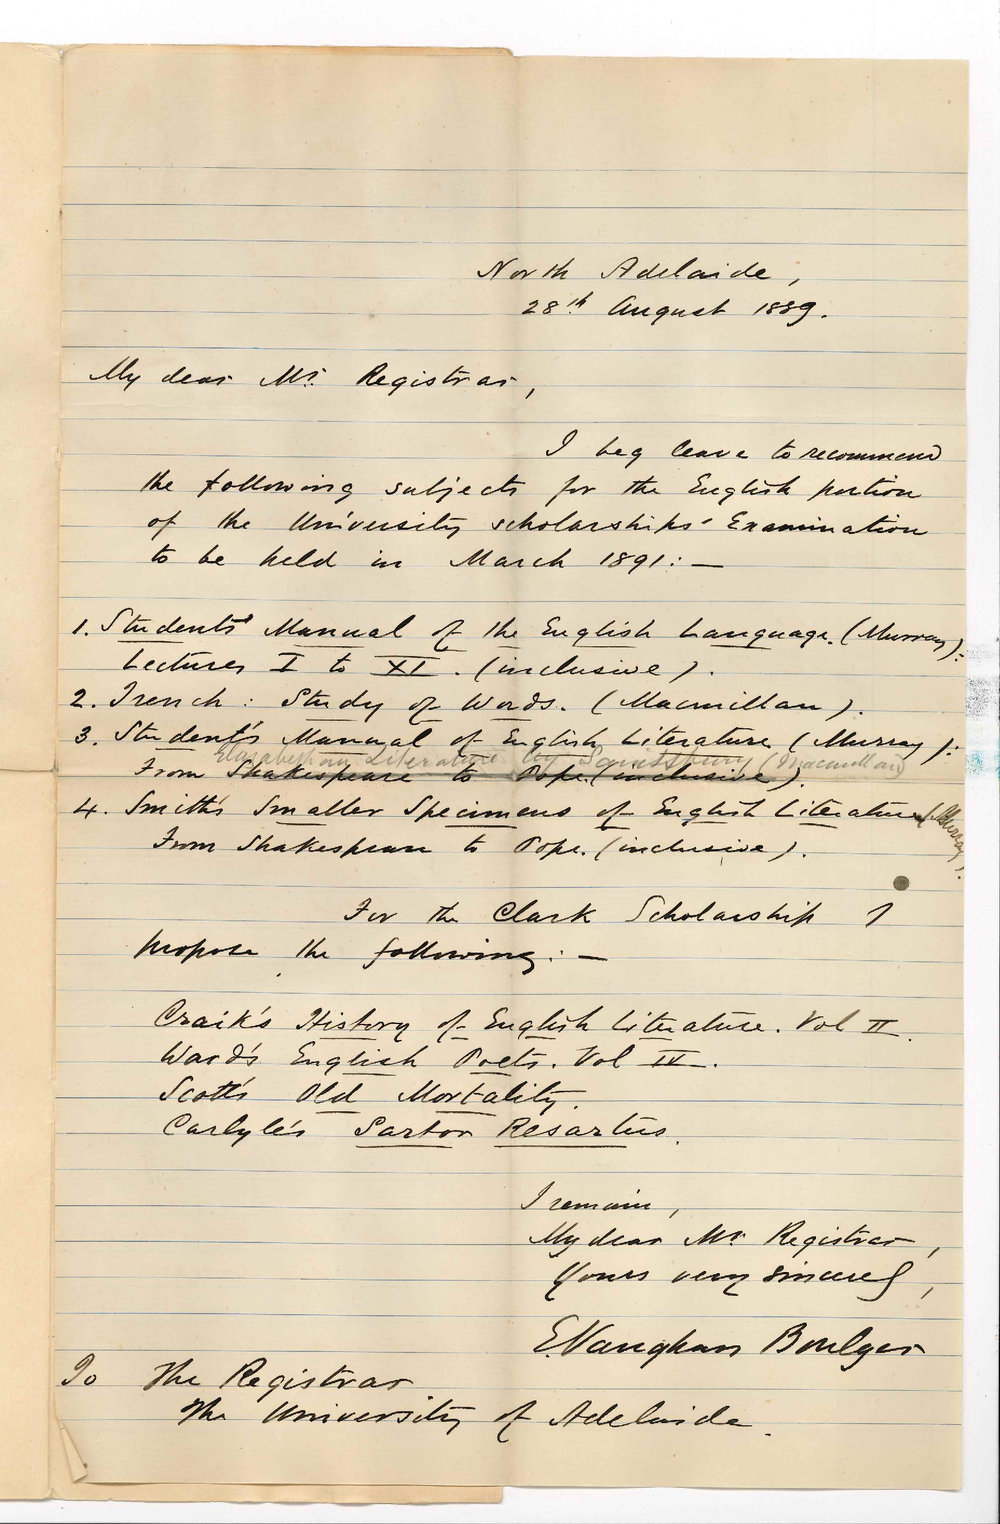 North Adelaide,
28th August 1889.
My dear Mr. Registrar,
I beg leave to recommend
the following subjects for the English portion
of the University scholarships' Examination
to be held in March 1891: —
1. Students' Manual of the English Language. (Murray):
Lectures I to XI. (inclusive).
2. Trench: Study of Words. (Macmillan).
3. Student's Manual of English Literature (Murray):
Elizabethan Literature by Saintsbury (Macmillan)
From Shakespeare to Pope. (inclusive).
4. Smith's Smaller Specimens of English Literature (Murray).
From Shakespeare to Pope. (inclusive).
For the Clark Scholarship I
propose the following: —
Craik's History of English Literature. Vol II.
Ward's English Poets. Vol IV.
Scott's Old Mortality.
Carlyle's Sartor Resartus.
I remain,
My dear Mr. Registrar,
Yours very sincerely,
E. Vaughan Boulger
To The Registrar
The University of Adelaide.